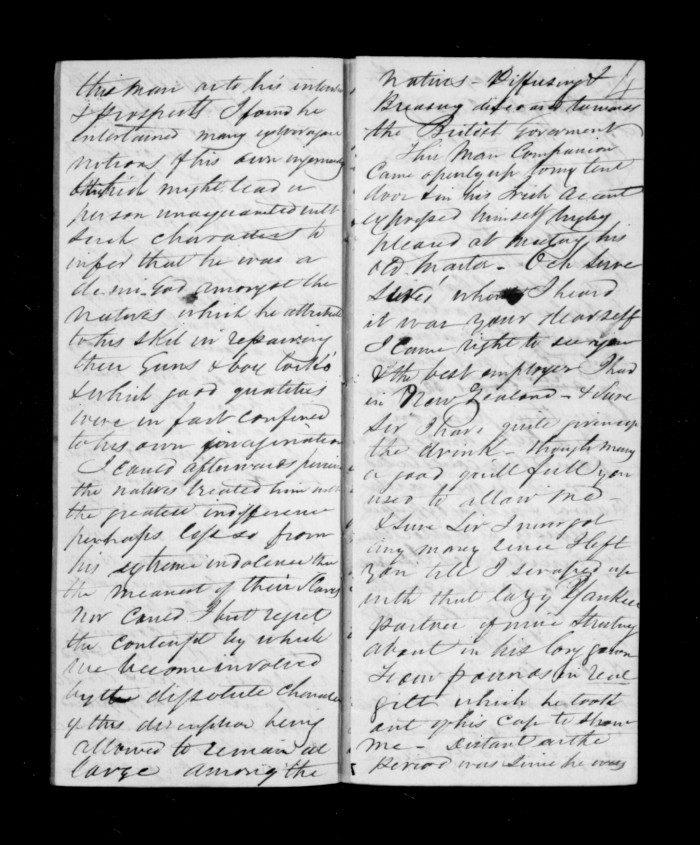 this man as to his inten
& prospects I found he
entertained many extravagan
notions of his own
which might lead a
person unacquainted with
such characters to
infer that he was a
demi-god amongst the
natives which he attribute
to his skil in repairing
their Guns & box lock's
& which good qualities
were in fact confined
to his own imagination
I could afterwards
the natives treated him
the greatest indifference
perhaps less so from
his extreme indolence than
the meanest of their slaves
Nor could I but regret
the contempt by which
we become involved
by the dissolute character
of this discription being
allowed to remain at
large among the
natives - Diffusing &
towards
the British Goverment
This Man Companion
Came openly up to my tent
door & in his Irish Accent
expressed himself highly
pleased at meeting his
old Master - Och sure
sure' when I heard
it was your dearself
I came right to see you
& the best employer I had
in New Zealand - & Sure
Sir I have quite given up
the drink - though many
a good gill full you
used to allow me -
& Sure Sir I never got
any money since I left
you till I scraped up
with that lazy Yankee
partner of mine Strutting
about in his long gown
Four pounds in real
gilt which he took
out of his cap to show
me - Distant as the
period was since he was